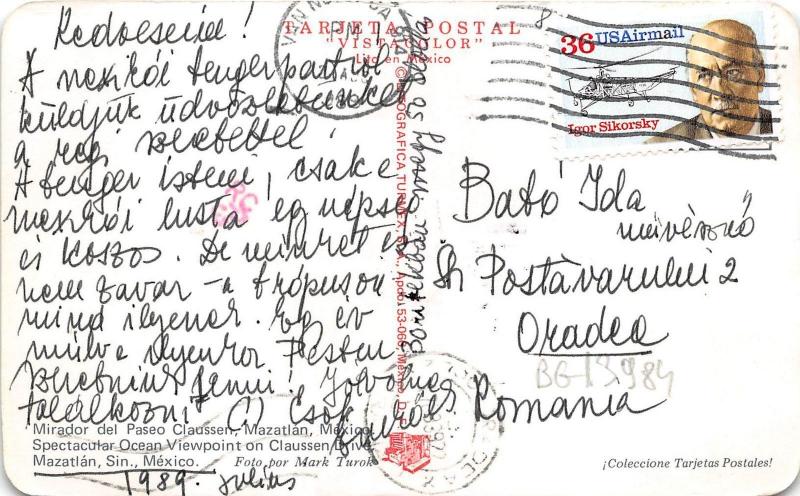 TARJETA POSTAL
"VISTACOLOR"
Lito en México
Kedveseim!
A mexikói tengerpartról
küldjük üdvözletünket
a régi szeretettel!
A tenger isteni, csak e
mexikói lusta egy népség
és koszos. De minket ez
nem zavar – a trópuson
mind ilyenek. Egy év
múlva ilyenkor Pesten
szeretnénk lenni! Jó volna
találkozni (!) Csók
1989. július
VAN NUYS, CA
PM
36 USAirmail
Igor Sikorsky
Bató Ida
művésznő
Str Postăvarului 2
Oradea
Romania
Mirador del Paseo Claussen, Mazatlán, México.
Spectacular Ocean Viewpoint on Claussen Drive
Mazatlán, Sin., México.
Foto por Mark Turok
¡Coleccione Tarjetas Postales!